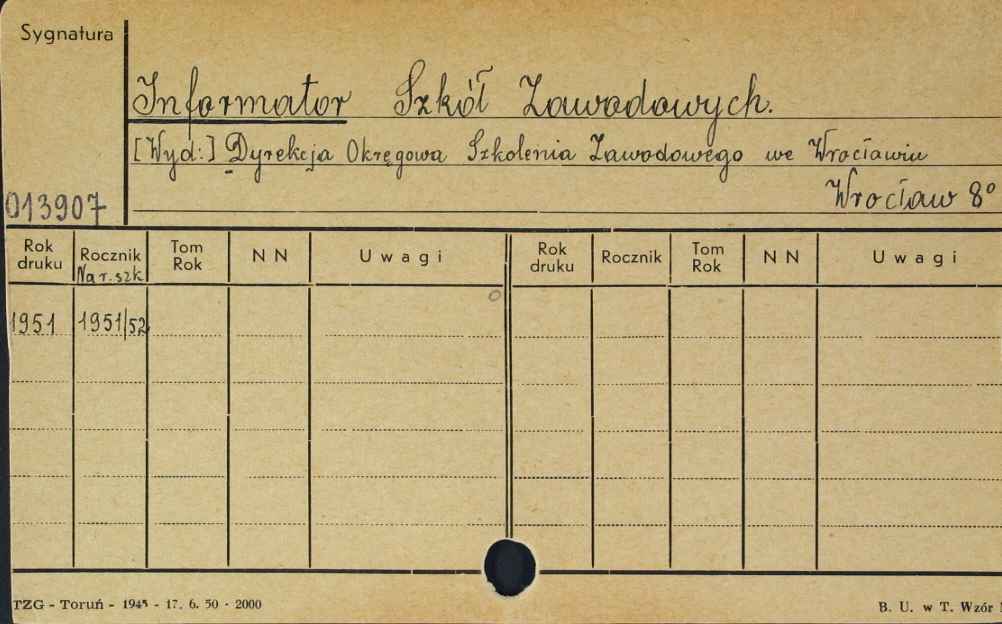 Sygnatura
Informator Szkół Zawodowych.
[Wyd:] Dyrekcja Okręgowa Szkolenia Zawodowego we Wrocławiu
Wrocław 8°
013907
Rok druku Rocznik Tom Rok N N Uwagi Rok druku Rocznik Tom Rok N N Uwagi
Na r. szk
1951 1951/52
TZG - Toruń - 1945 - 17. 6. 50 · 2000
B. U. w T. Wzór